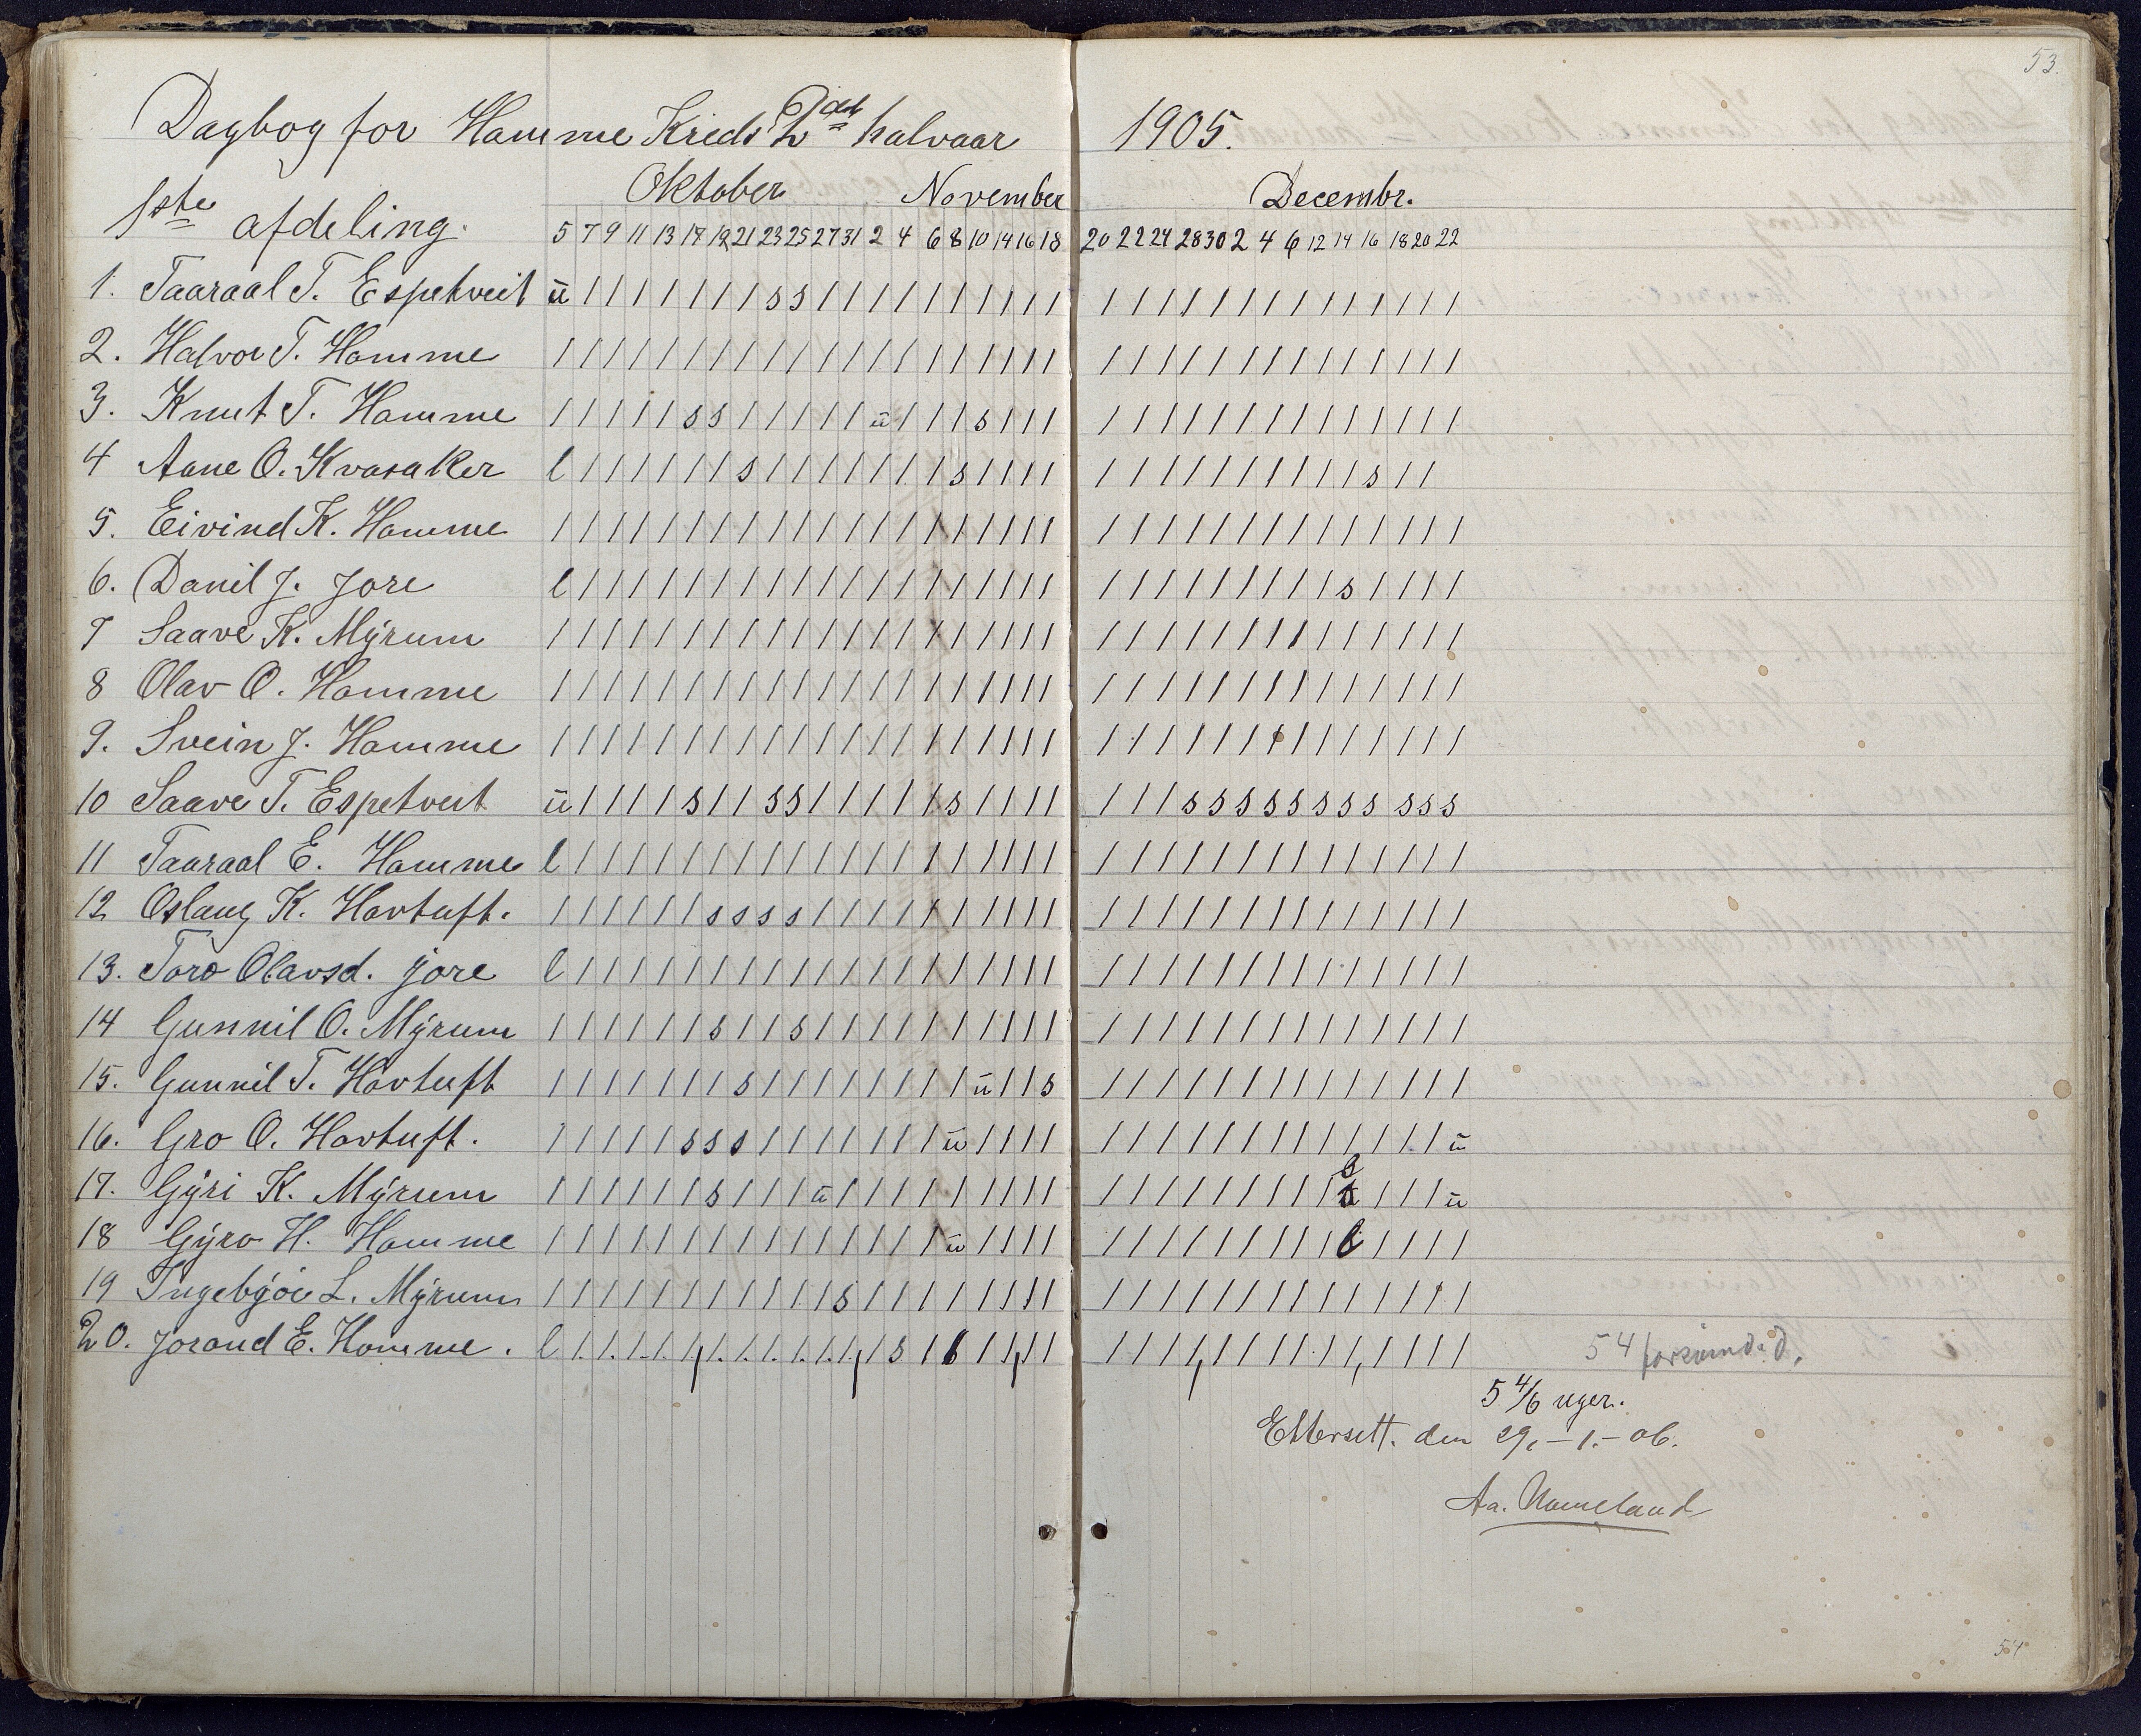 53.
Dagbog for Hamme Kreds 2det halvaar 1905.
1ste afdeling. Oktober November Decembr.
5 7 9 11 13 17 19 21 23 25 27 31 2 4 6 8 10 14 16 18 20 22 24 28 30 2 4 6 12 14 16 18 20 22
1. Taaraal T. Espetveit ü / / / / / / / / s s / / / / / / / / / / / / / / / / / / / / / / / /
2. Halvor T. Homme / / / / / / / / / / / / / / / / / / / / / / / / / / / / / / / / / /
3. Knut T. Homme / / / / / s s / / / / / ü / / / s / / / / / / / / / / / / / / / / /
4 Aane O. Kvasaker l / / / / / / s / / / / / / / s / / / / / / / / / / / / / / s / /
5. Eivind K. Homme / / / / / / / / / / / / / / / / / / / / / / / / / / / / / / / / / /
6. Danil J. Jore l / / / / / / / / / / / / / / / / / / / / / / / / / / / / s / / / /
7 Saave K. Mÿrum / / / / / / / / / / / / / / / / / / / / / / / / / / / / / / / / / /
8 Olav O. Homme / / / / / / / / / / / / / / / / / / / / / / / / / / / / / / / / / /
9. Svein J. Homme / / / / / / / / / / / / / / / / / / / / / / / / / / / / / / / / / /
10 Saave T. Espetveit ü / / / / s / / s s / / / / / s / / / / / / / s s s s s s s s s s s
11 Taaraal E. Homme l / / / / / / / / / / / / / / / / / / / / / / / / / / / / / / / / /
12 Oslaug K. Hovtuft. / / / / / / s s s s / / / / / / / / / / / / / / / / / / / / / / / /
13. Toro Olavsd. Jore l / / / / / / / / / / / / / / / / / / / / / / / / / / / / / / / / /
14 Gunnil O. Mÿrum / / / / / / s / / s / / / / / / / / / / / / / / / / / / / / / / / /
15. Gunnil T. Hovtuft / / / / / / / s / / / / / / / / ü / / s / / / / / / / / / / / / / /
16. Gro O. Hovtuft. / / / / / s s s / / / / / / / ü / / / / / / / / / / / / / / / / / ü
17. Gÿri K. Mÿrum / / / / / / s / / / ü / / / / / / / / / / / / / / / / / / / s / / / ü
18 Gÿro H. Homme / / / / / / / / / / / / / / / ü / / / / / / / / / / / / / l / / / /
19 Ingebjör L. Mÿrum / / / / / / / / / / / s / / / / / / / / / / / / / / / / / / / / / /
20. Jorand E. Homme. l / / / / / / / / / / / / s / 6 / / / / / / / / / / / / / / / / / / 54 forsömd. d.
5 4/6 uger.
Ettersett. den 29.-1.-06.
Aa. Nomeland
54